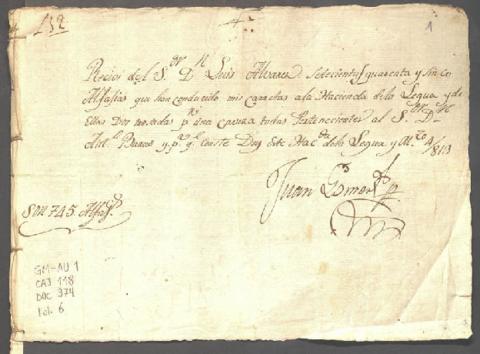 152
1
Recivi del S.or D.n Luis Alvares Setecientos quarenta y sinco
Alfajias que han conducido mis carretas a la Hacienda de la Legua y de
ellas Dos por una Causa todas Pertenecientes al S.or D.n
Ant.o y p.a q.e Conste Doy este Hac.da de la Legua y M.zo 4/813
Juan Gomes
Son 745 Alfag.s
GM-AU 1
CAJ 118
DOC 374
Fol. 6